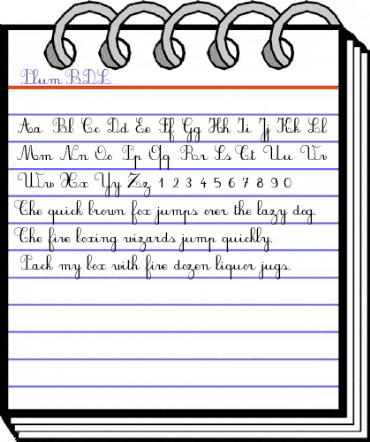 Plum BDL
Aa Bb Cc Dd Ee Ff Gg Hh Ii Jj Kk Ll
Mm Nn Oo Pp Qq Rr Ss Tt Uu Vv
Ww Xx Yy Zz 1 2 3 4 5 6 7 8 9 0
The quick brown fox jumps over the lazy dog.
The five boxing wizards jump quickly.
Pack my box with five dozen liquor jugs.